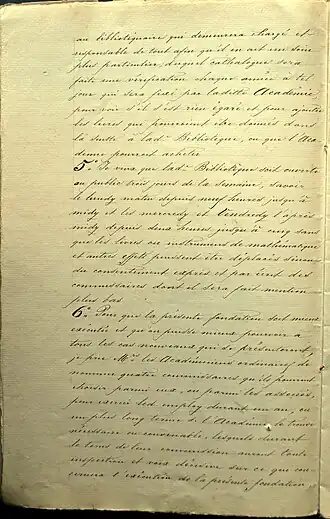 au bibliotéquaire qui demeurera chargé et
responsable de tout afin qu'il en ait un soin
plus particulier, duquel cathalogue sera
faite une vérification chaque année à tel
jour qui sera fixé par ladite Académie
pour voir s'il s'est rien égaré et pour ajouter
les livres que pourroient être donnés dans
la suite à lad. Bibliotèque, ou que l'Aca-
demie pourroit acheter.
5.° Je veux que lad. Bibliotèque soit ouverte
au public trois jours de la semaine, savoir
le lundy matin depuis neuf heures jusqu'à
midy et les mercredy et Vendredy l'après
midy depuis deux heures jusqu'à cinq sans
que les livres ou instrumens de mathématique
et autres effets puissent être déplacés sinon
du consentement exprès et par écrit des
commissaires dont il sera fait mention
plus bas.
6.° Pour que la présente fondation soit mieux
exécutée et qu'on puisse mieux pourvoir à
tous les cas nouveaux qui se présenteront,
je prie Mrs. les Académiciens ordinaires de
nommer quatre commissaires qu'ils pourront
choisir parmi eux, ou parmi les associés,
pour exercer led. employ durant un an, ou
un plus long terme si l'Académie le trouve
nécessaire ou convenable, lesquels durant
le tems de leur commission auront toute
inspection et voix décisive sur ce qui con-
cernera l'exécution de la présente fondation,